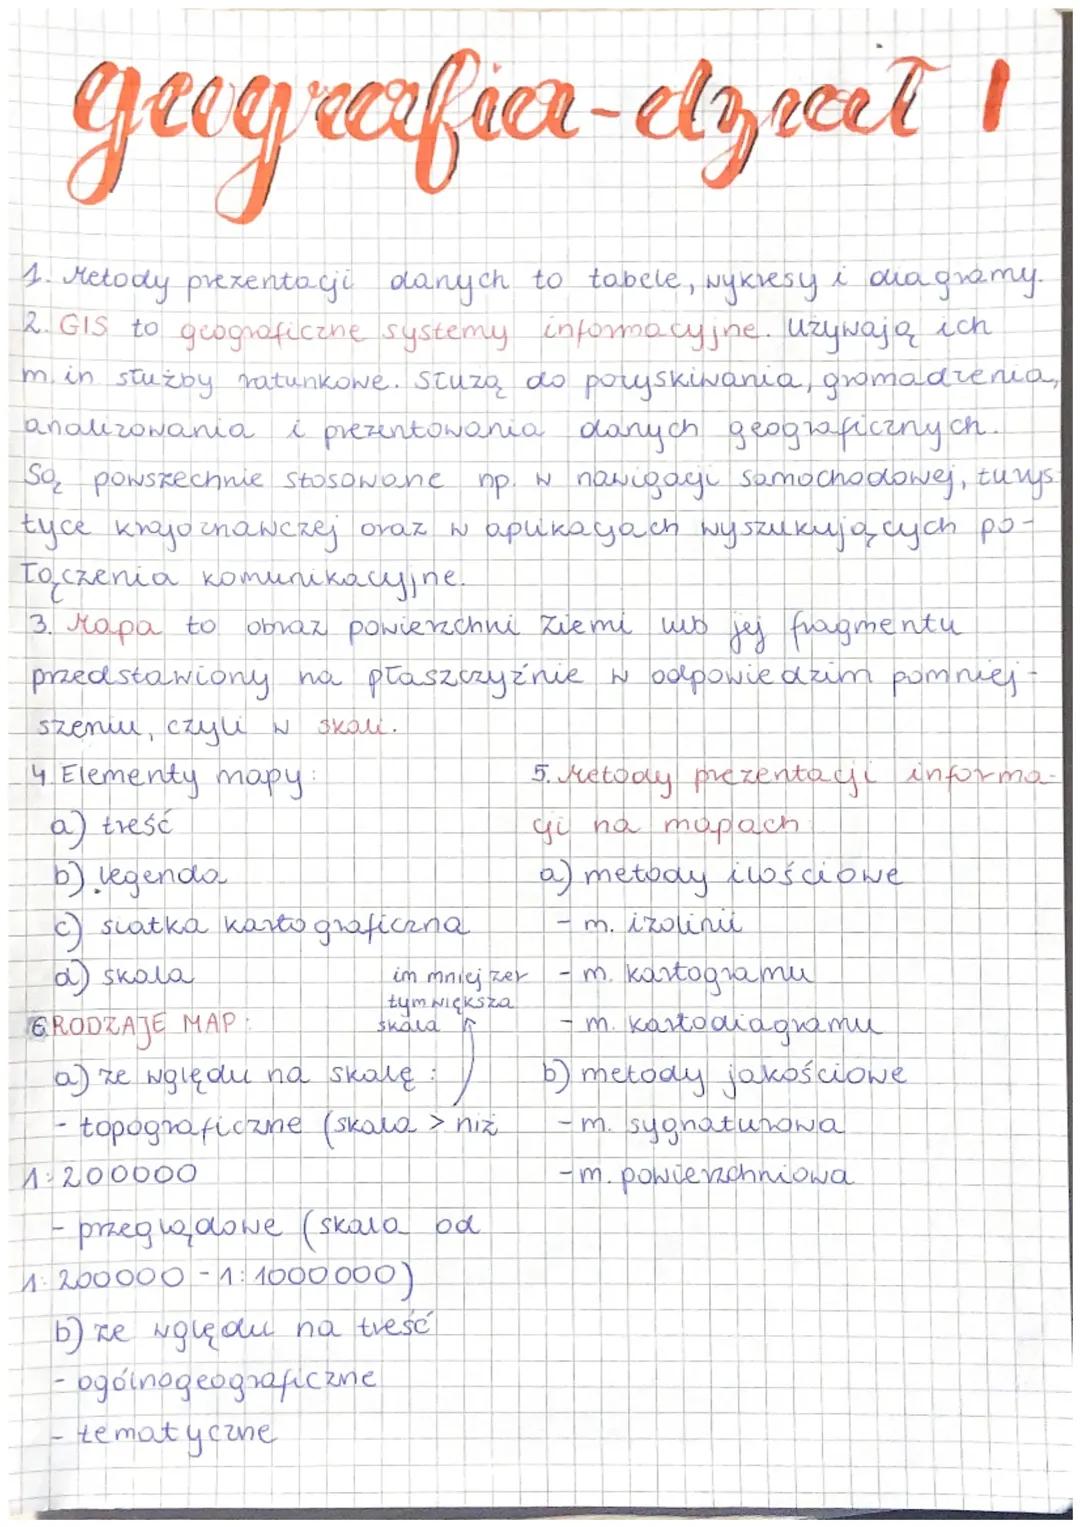 geografia-dział 1
1. Metody prezentacji danych to tabele, wykresy i diagramy.
2. GIS to geograficzne systemy informacyjne. Używają ich
m.in służby ratunkowe. Służą do pozyskiwania, gromadzenia,
analizowania i prezentowania danych geograficznych.
Są powszechnie stosowane np. w nawigacji samochodowej, turys
tyce krajoznawczej oraz w aplikacjach wyszukujących po-
łączenia komunikacyjne.
3. Mapa to obraz powierzchni Ziemi lub jej fragmentu
przedstawiony na płaszczyźnie w odpowiedzim pomniej-
szeniu, czyli w skali.
4. Elementy mapy:
a) treść
b) legenda
c) siatka kartograficzna
d) skala
5. Metody prezentacji informa-
cji na mapach
a) metody ilościowe
- m. izolinii
- m. kartogramu
- m. kartodiagramu
b) metody jakościowe
- m. sygnaturowa
- m. powierzchniowa
6 RODZAJE MAP:
im mniej zer
tym większa
skala
a) ze względu na skalę:
- topograficzne (skala > niż
1:200000
- przeglądowe (skala od
1:200000 - 1:1000000)
b) ze względu na treść
- ogólnogeograficzne
- tematyczne